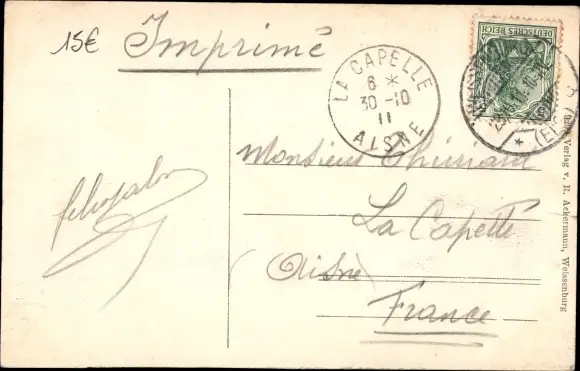 15€
Imprimé
DEUTSCHES REICH
LA CAPELLE
6 *
30-10
11
AISNE
Monsieur
La Capelle
(Aisne)
France
Verlag v. R. Ackermann, Weissenburg